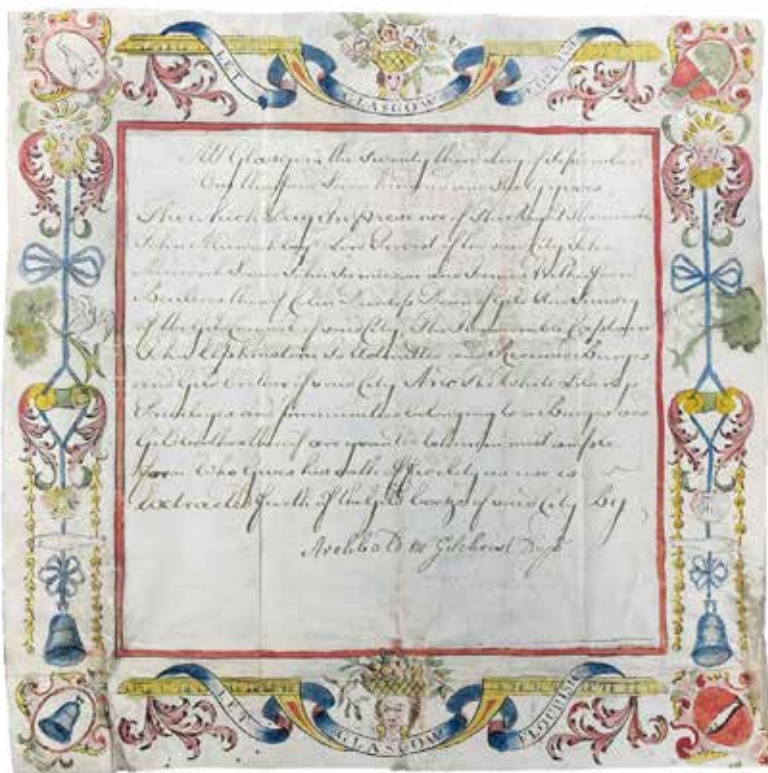 LET GLASGOW FLOURISH
Att Glasgow the Twenty third day of September
One thousand Seven hundred and Sixty years
The which Day In presence of the Right Honourable
John Murdoch Esqr Lord Provost of the said City John
Murdoch Junior John Jamieson and James
thereof Colin Dunlop Dean of Gild And Sundry
of the Gild Council of said City The Honourable Captain
John Elphinstone Is Admitted and Received Burges
and Gild brother of said City And The whole
Priviledges and Immunities belonging to an Burges and
Gild brother thereof are granted to him in most ample
form Who Gives his oath of fidelity as use is
Extracted furth of the Gild books of said City By
Archbald McGilchrist
LET GLASGOW FLOURISH